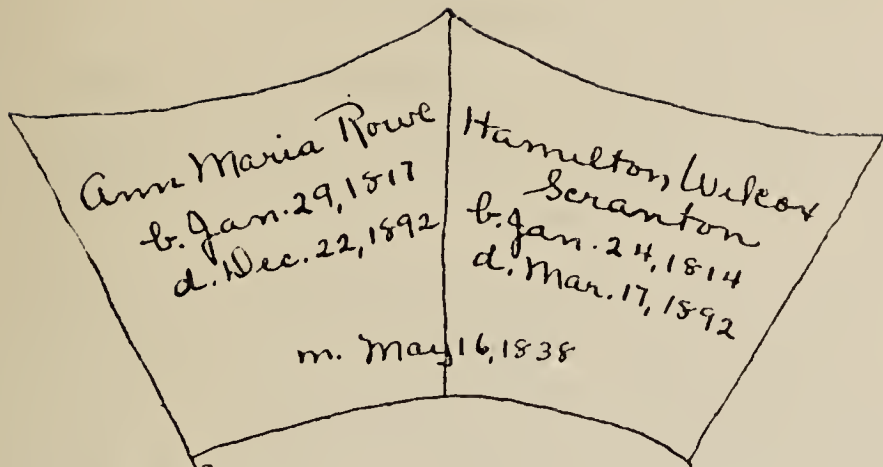 Ann Maria Rowe
b. Jan. 29, 1817
d. Dec. 22, 1892
Hamilton Wilcox
Scranton
b. Jan. 24, 1814
d. Mar. 17, 1892
m. May 16, 1838